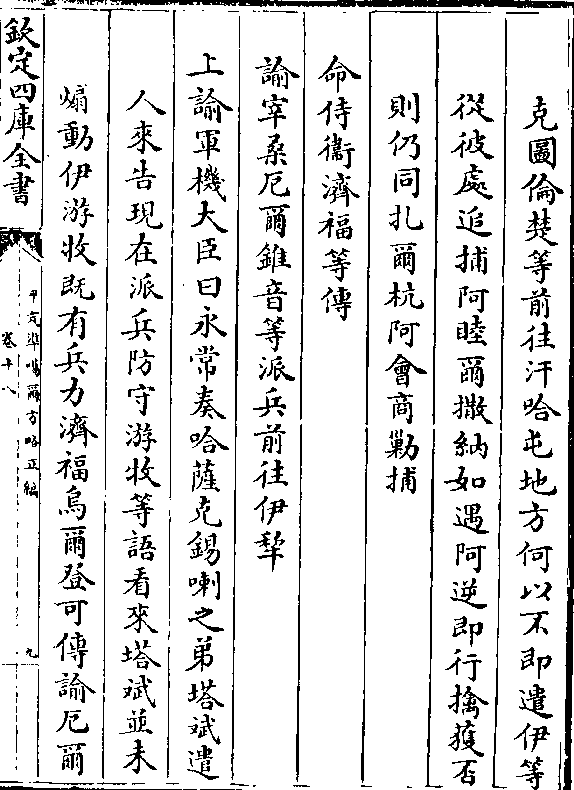 克圖倫楚等前往汗哈屯地方何以不即遣伊等
從彼處追捕阿睦爾撒納如遇阿逆即行擒獲否
則仍同扎爾杭阿會商勦捕
命侍衞濟福等傳
諭宰桑厄爾錐音等派兵前往伊犂
上諭軍機大臣曰永常奏哈薩克錫喇之弟塔斌遣
人來告現在派兵防守游牧等語看來塔斌並未
煽動伊游牧既有兵力濟福烏爾登可傳諭厄爾
欽定四庫全書
平定準噶爾方略正編
卷十八
九